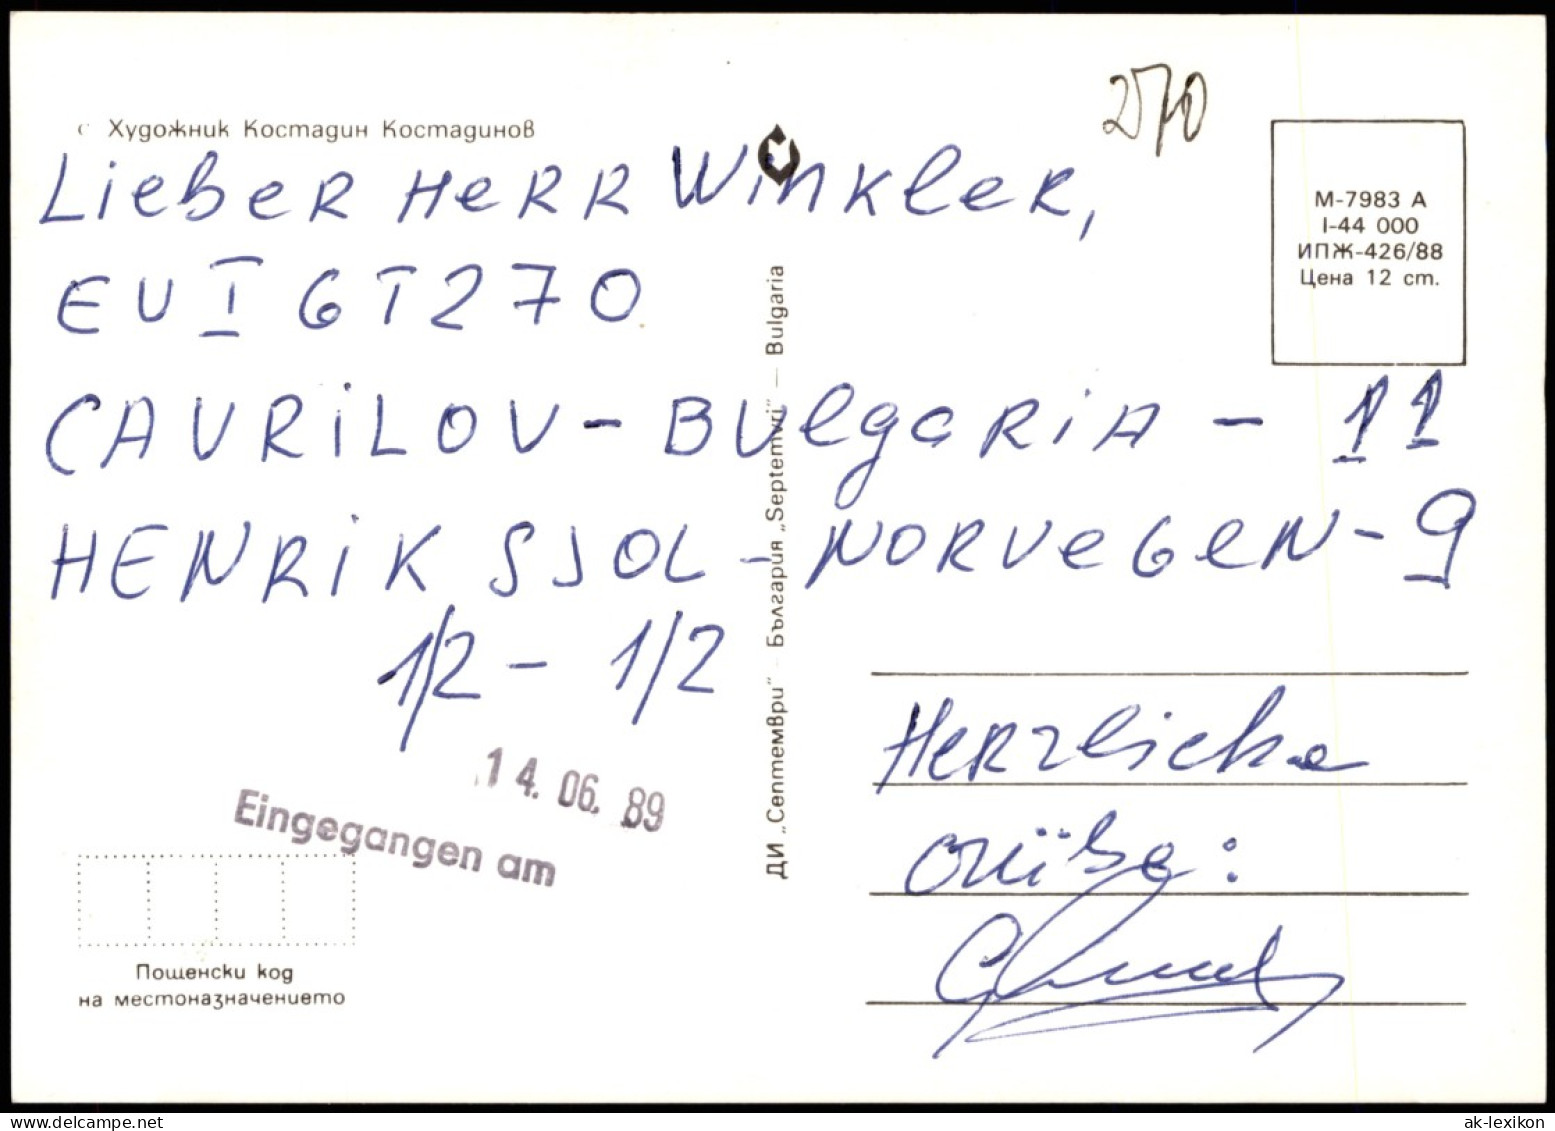 с Художник Костадин Костадинов
270
Lieber Herr Winkler,
EU I GT270
CAVRILOV - BUlgaRiA - 11
HENRIK SJOL - NORVEGEN - 9
1/2 - 1/2
Herzliche
М-7983 А
I-44 000
ИПЖ-426/88
Цена 12 ст.
ДИ „Септември" — България „Septemvri" — Bulgaria
14. 06. 89
Eingegangen am
Пощенски код
на местоназначението
ak-lexikon